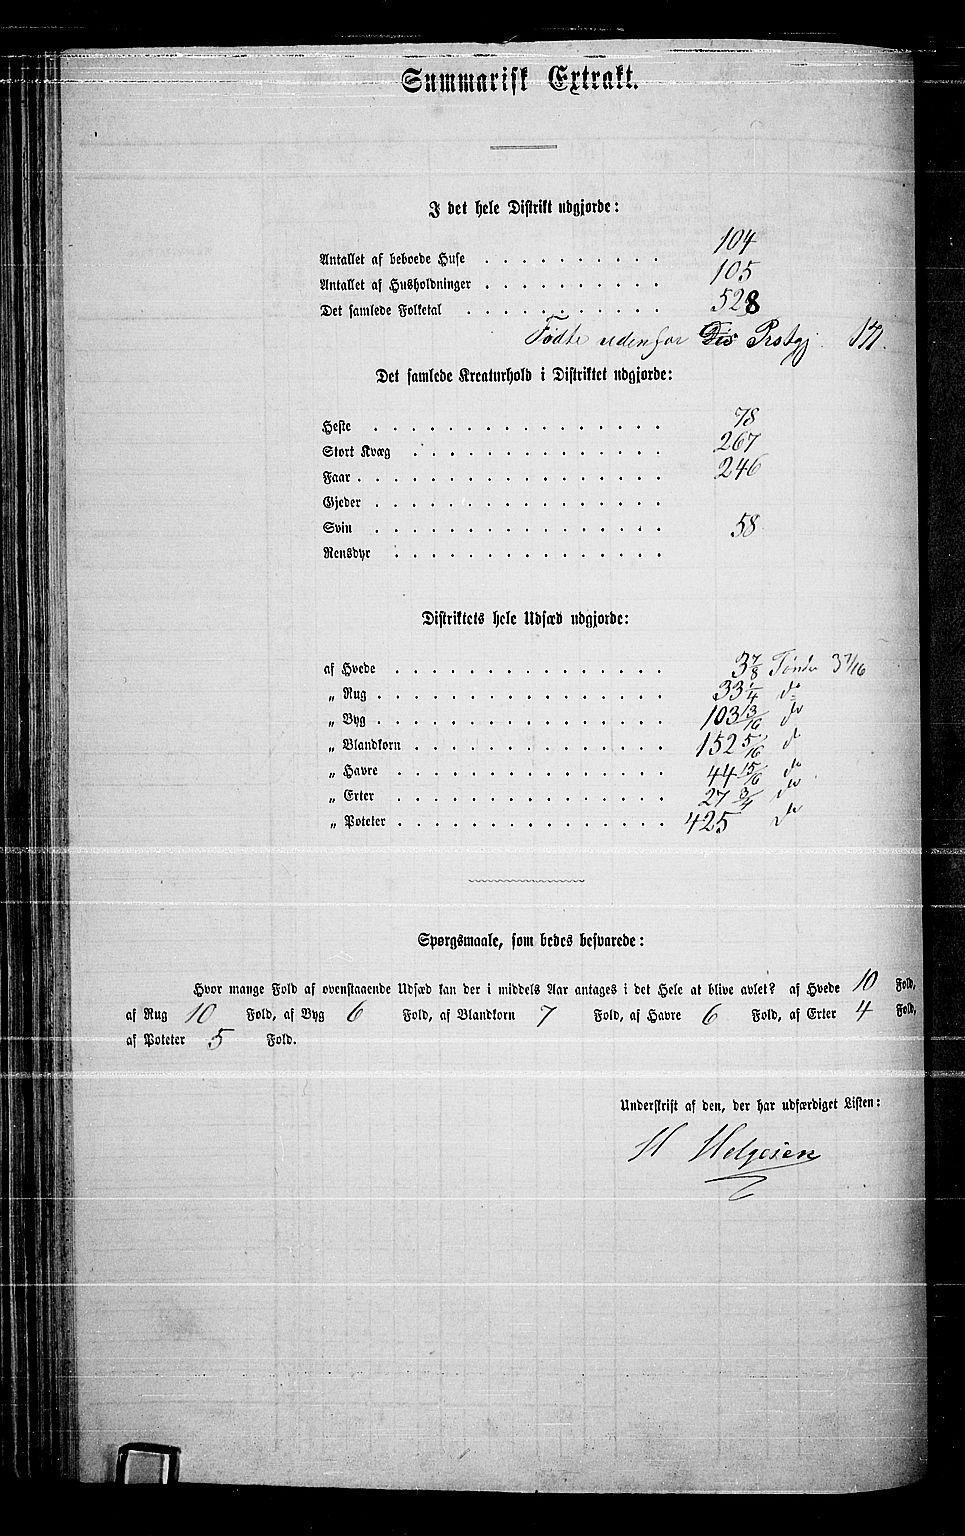 Summarisk Extrakt.
I det hele Distrikt udgjorde:
Antallet af beboede Huse . . . . . . . . . . 104
Antallet af Husholdninger . . . . . . . . . . 105
Det samlede Folketal . . . . . . . . . . . 528
Fødte udenfor Prstgj.
Det samlede Kreaturhold i Distriktet udgjorde:
Heste . . . . . . . . . . . . . . . . 78
Stort Kvæg . . . . . . . . . . . . . . 267
Faar . . . . . . . . . . . . . . . . . 246
Gjeder . . . . . . . . . . . . . . . .
Svin . . . . . . . . . . . . . . . . 58
Rensdyr . . . . . . . . . . . . . . .
Distriktets hele Udsæd udgjorde:
af Hvede . . . . . . . . . . . . . . . 3 7/8 Tønde 3 7/16
„ Rug . . . . . . . . . . . . . . . . 33 1/4 do
„ Byg . . . . . . . . . . . . . . . . 103 13/16 do
„ Blandkorn . . . . . . . . . . . . . . 152 5/16 do
„ Havre . . . . . . . . . . . . . . . 44 15/16 do
„ Erter . . . . . . . . . . . . . . . 27 3/4 do
„ Poteter . . . . . . . . . . . . . . . 425 do
Spørgsmaale, som bedes besvarede:
Hvor mange Fold af ovenstaaende Udsæd kan der i middels Aar antages i det Hele at blive avlet? af Hvede 10 Fold,
af Rug 10 Fold, af Byg 6 Fold, af Blandkorn 7 Fold, af Havre 6 Fold, af Erter 4 Fold,
af Poteter 5 Fold.
Underskrift af den, der har udfærdiget Listen:
H Helgesen